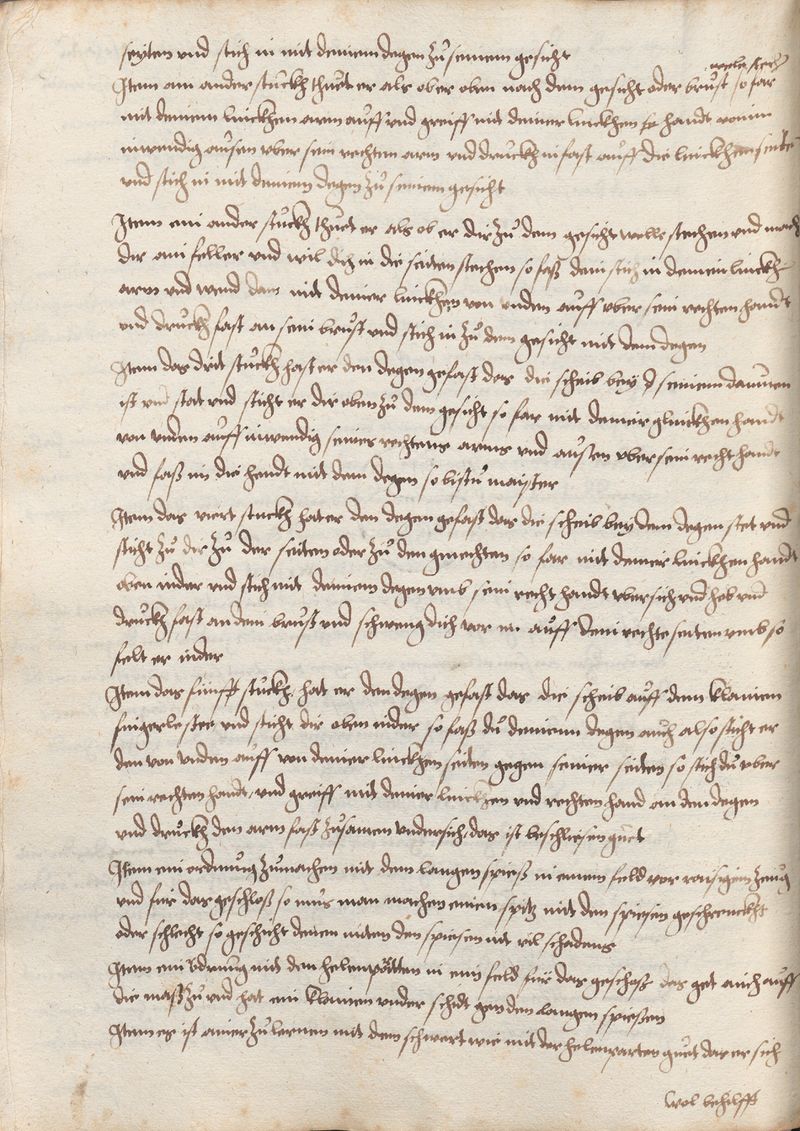 seyten vnd stich in mit deinem degen zu seinem gesicht
wela stech
Item ain ander stuckh thuet er als ob er oben nach dem gesicht oder brust so far
mit deinem linckhen arm auff vnd greiff mit deiner linckhen handt vonim
inwendig ausen vber sein rechten arm vnd druckh in fast auff die linckhen seiten
vnd stich in mit deinem degen zu seinem gesicht
Item ein ander stuckh thuet er als ob er dir zu dem gesicht welle stechen vnd macht
dir ain feller vnd wil dich in die seiten stechen so faß dein stich in deinem linckhen
arm vnd wend dan mit deiner linckhen von vnden auff vber sein rechten handt
vnd druckh fast an sein brust vnd stich in zu dem gesicht mit dem degen
Item das drit stuckh hast er den degen gefast das die scheib bey seinem daumen
ist vnd stat vnd sticht er dir oben zu dem gesicht so far mit deiner glinckhen handt
von vnden auff inwendig seines rechtens arms vnd ausen vber sein recht handt
vnd faß im die hendt mit dem degen so bistu maister
Item das viert stuckh hat er den degen gefast das die scheib bey dem degen stet vnd
sticht zu dir zu der seiten oder zu den gmechten so far mit deiner linckhen handt
oben nider vnd stich mit deinem degen vmb sein recht handt vbersich vnd heb vnd
druckh fast an dein brust vnd schweng dich vor im auff dein rechte seiten vmb so
felt er nider
Item das funfft stuckh hat er den degen gefast das die scheib auff dem klainen
finger leste vnd sticht dir oben nider so faß du deinem degen auch also sticht er
den von vnden auff von deiner linckhen seiten gegen seiner seiten so stich du vber
sein rechten handt vnd greiff mit deiner linckhen vnd rechten hand an den degen
vnd druckh den arm fast zusamen vndersich das ist beschliesen guet
Item ein ordnung zumachen mit dem langen spiess in einem feld vor raisigem zeug
vnd fur das geschloß so mus man machen einen spitz mit den spiesen geschrenckht
oder schlecht so geschicht denen mitten den spiesen nit vil schadens
Item ein ordnung mit den helenparten in ein feld fur das geschoß das get auch auff
die maß zu vnd hat ein klainen vnder schidt gen den langen spiessen
Item es ist ainer zu lernen mit dem schwert wie mit der helenparten guet dar er sich
wol behilfft